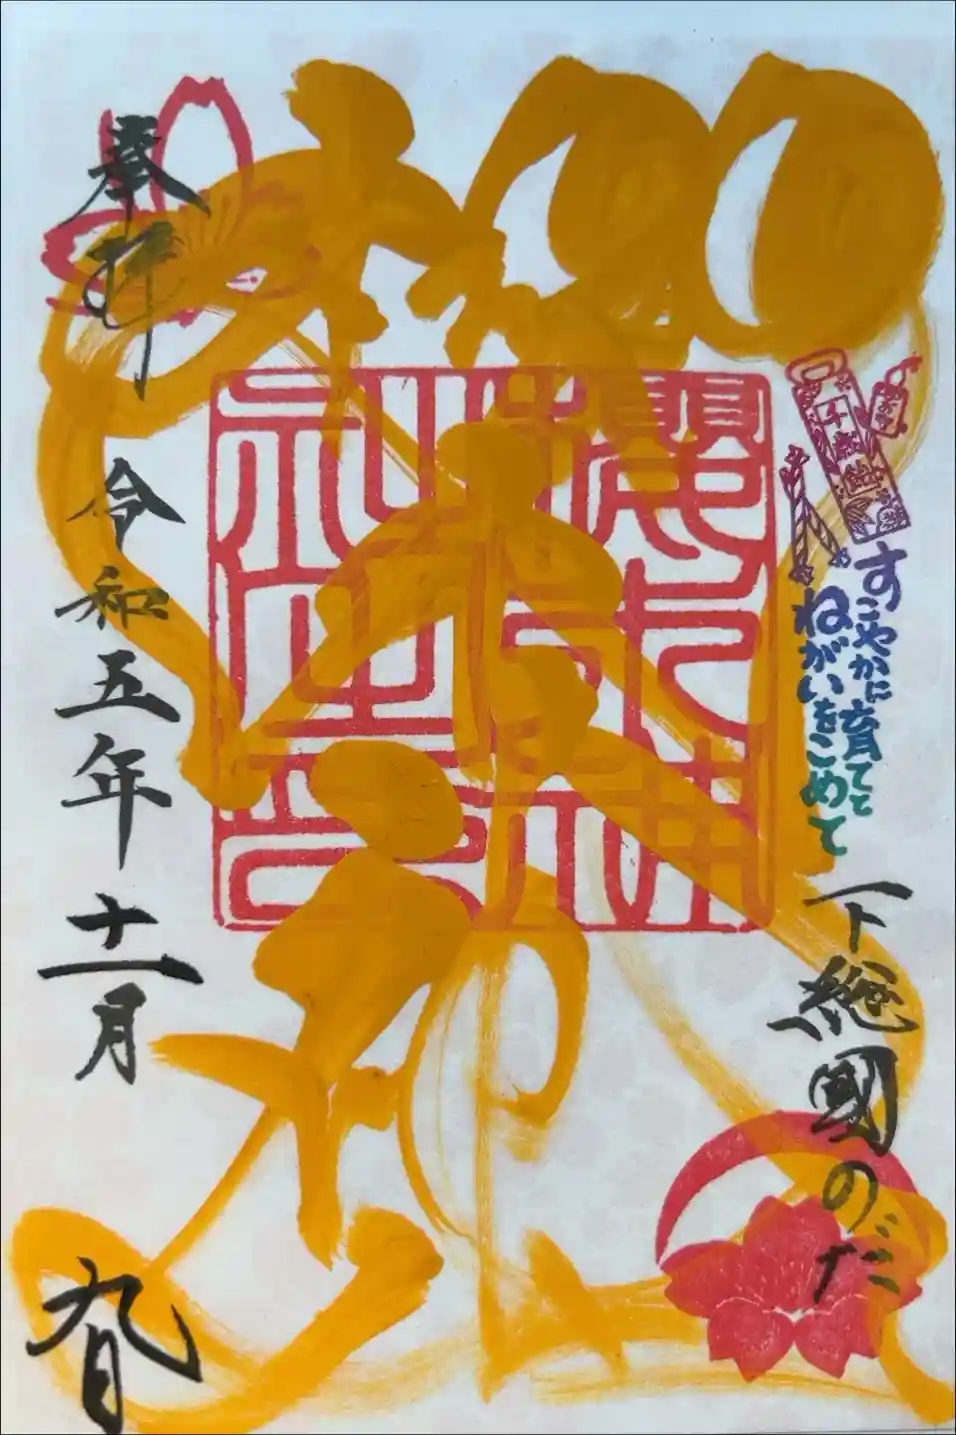 下総國のだ
千歳飴
すこやかに育てと
ねがいをこめて
櫻木神社
奉拝
令和五年十一月
九日